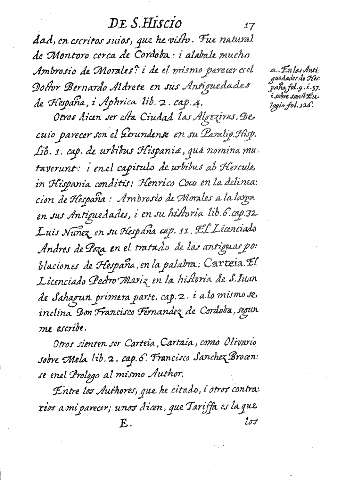 DE S. HISCIO 17
dad, en escritos suios, que he visto. Fue natural
de Montoro cerca de Cordoba: i alabale mucho
Ambrosio de Morales.ᵃ i de el mismo parecer es el
Doctor Bernardo Aldrete en sus Antiguedades
de Hespaña, i Aphrica lib. 2. cap. 4.
a. En las Anti
guedades de Hes
paña, fol. 9. i 37.
i sobre san Eu
logio, fol. 126.
Otros dicen ser esta Ciudad las Algeziras. De
cuio parecer son el Gerundense en su Paralip. Hisp.
lib. 1. cap. de urbibus Hispaniæ, quæ nomina mu-
taverunt: i en el capitulo de urbibus ab Hercule
in Hispania conditis: Henrico Coco en la delinea-
cion de Hespaña: Ambrosio de Morales a la larga
en sus Antiguedades, i en su historia lib. 6. cap. 32
Luis Nuñez en su Hespaña cap. 11. El Licenciado
Andres de Poza en el tratado de las antiguas po-
blaciones de Hespaña, en la palabra: Carteia. El
Licenciado Pedro Mariz en la historia de S. Iuan
de Sahagun primera parte, cap. 2. i a lo mismo se
inclina Don Francisco Fernandez de Cordoba, segun
me escribe.
Otros sienten ser Carteia, Cartaia, como Olivario
sobre Mela lib. 2. cap. 6. Francisco Sanchez Brocen-
se en el Prologo al mismo Author.
Entre los Authores, que he citado, i otros contra-
rios a mi parecer; unos dicen, que Tariffa es la que
E. los